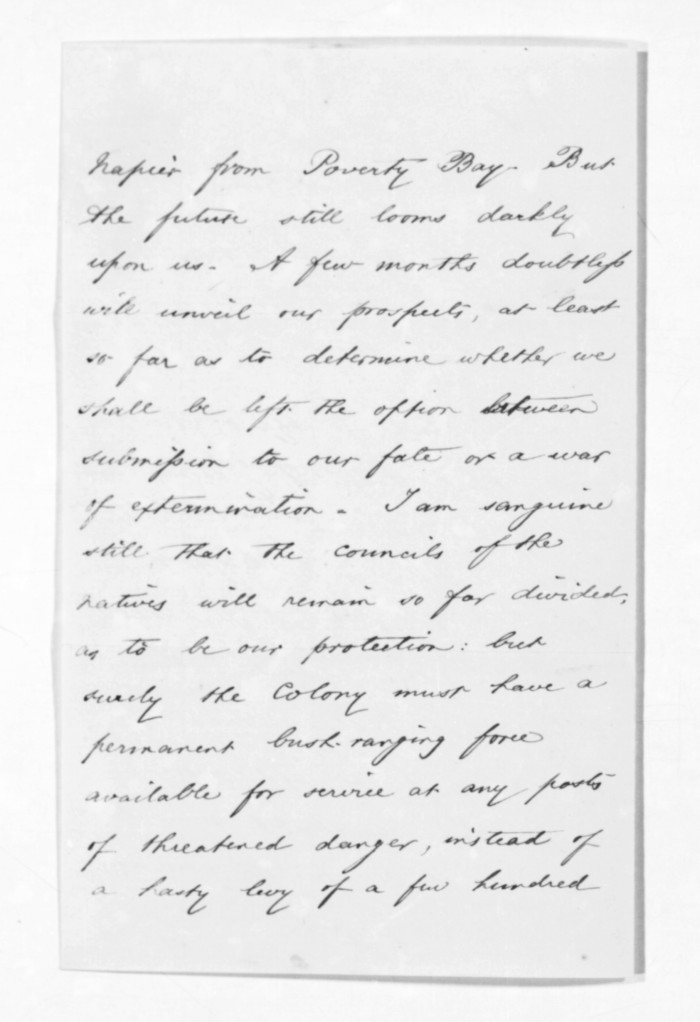 Napier from Poverty Bay. But
the future still looms darkly
upon us. A few months doubtless
will unveil our prospects, at least
so far as to determine whether we
shall be left the option between
submission to our fate or a war
of extermination. I am sanguine
still that the councils of the
natives will remain so far divided,
as to be our protection: but
surely the Colony must have a
permanent bush-ranging force
available for service at any posts
of threatened danger, instead of
a hasty levy of a few hundred